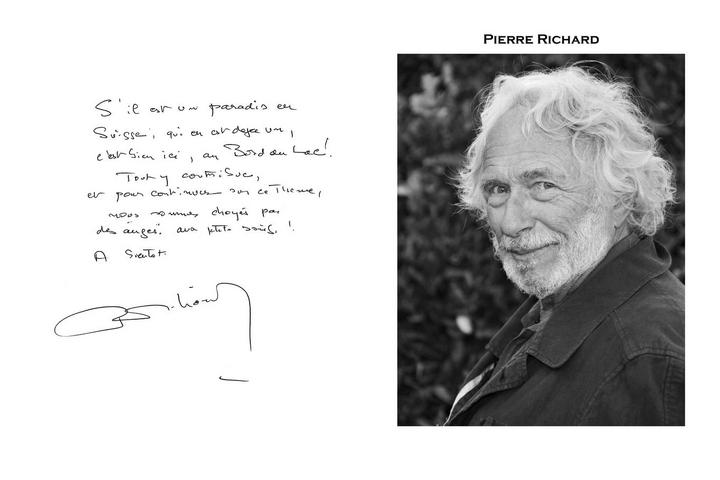 S'il est un paradis en
Suisse, qui en est déjà un,
c'est bien ici, au Bord du Lac!
Tout y contribue,
et pour continuer sur ce Thème,
nous sommes choyés par
des anges. aux ptits soins. !
A Bientôt.
Pierre Richard
PIERRE RICHARD